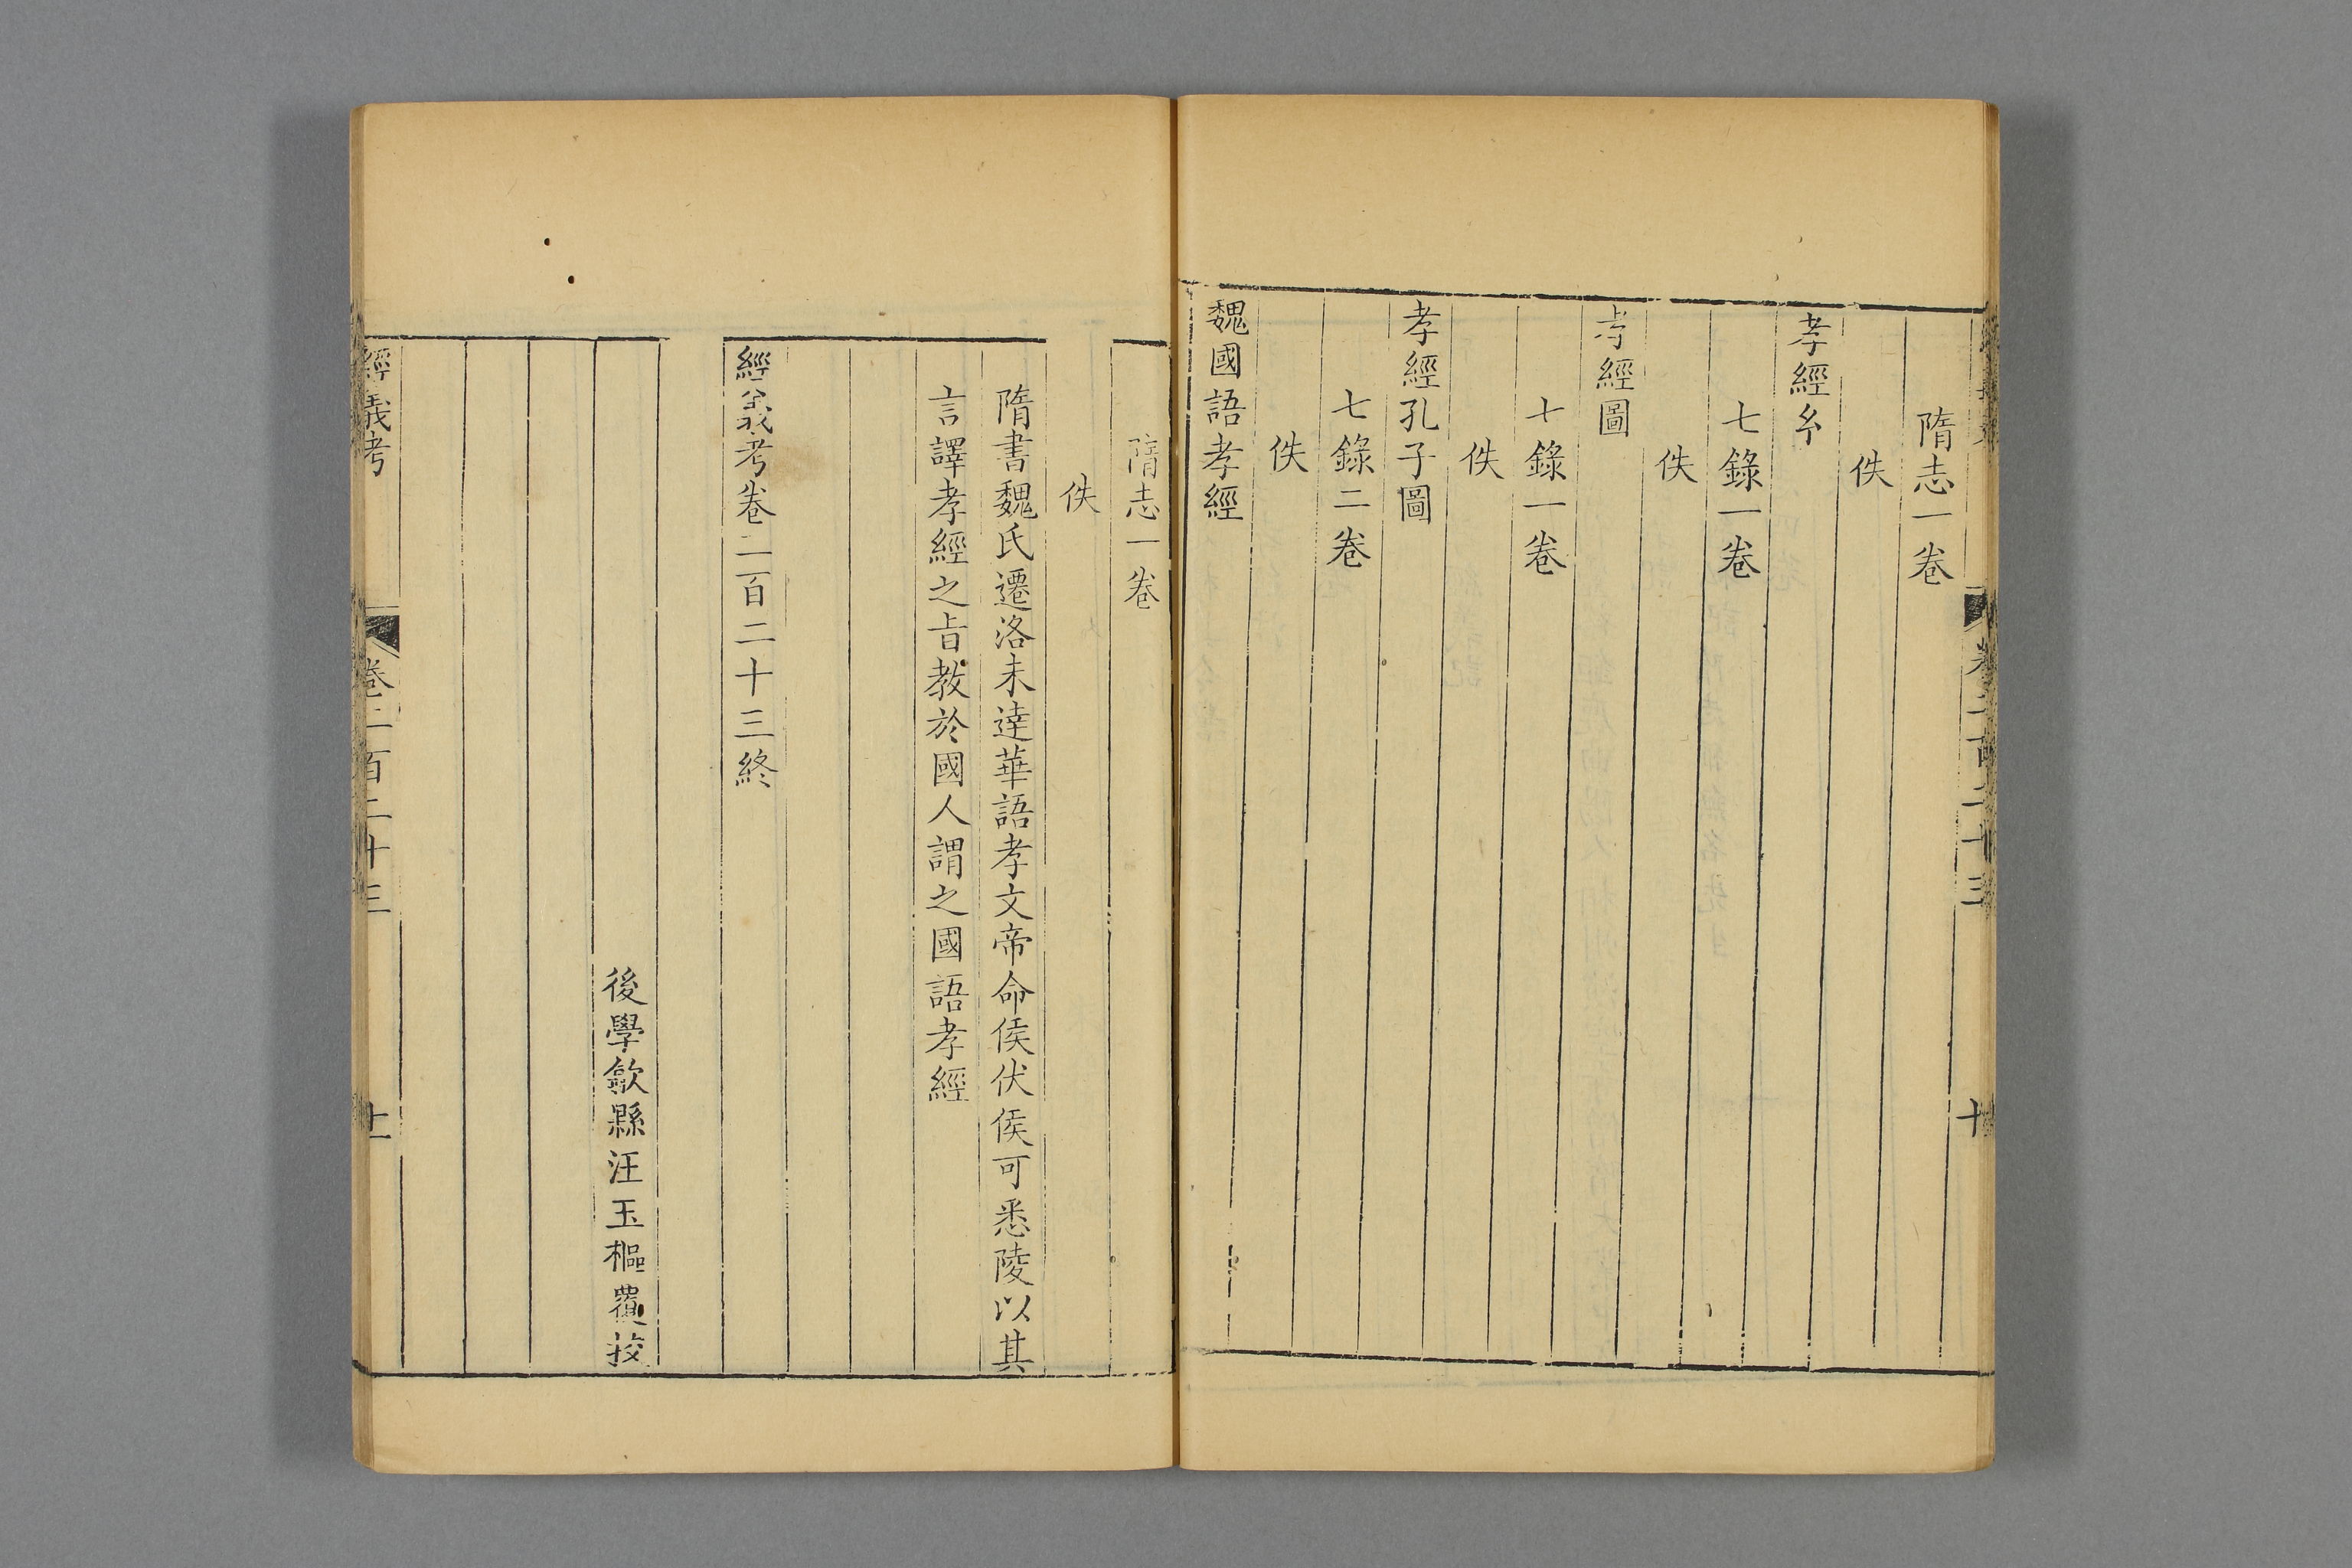 隋志一卷
佚
孝經
七錄一卷
佚
孝經圖
七錄一卷
佚
孝經孔子圖
七錄二卷
佚
魏國語孝經
卷二百二十三
十
隋志一卷
佚
隋書魏氏遷洛未達華語孝文帝命侯伏侯可悉陵以其
言譯孝經之旨教於國人謂之國語孝經
經義考卷二百二十三終
後學歙縣汪玉樞覆挍
經義考
卷二百二十三
十一